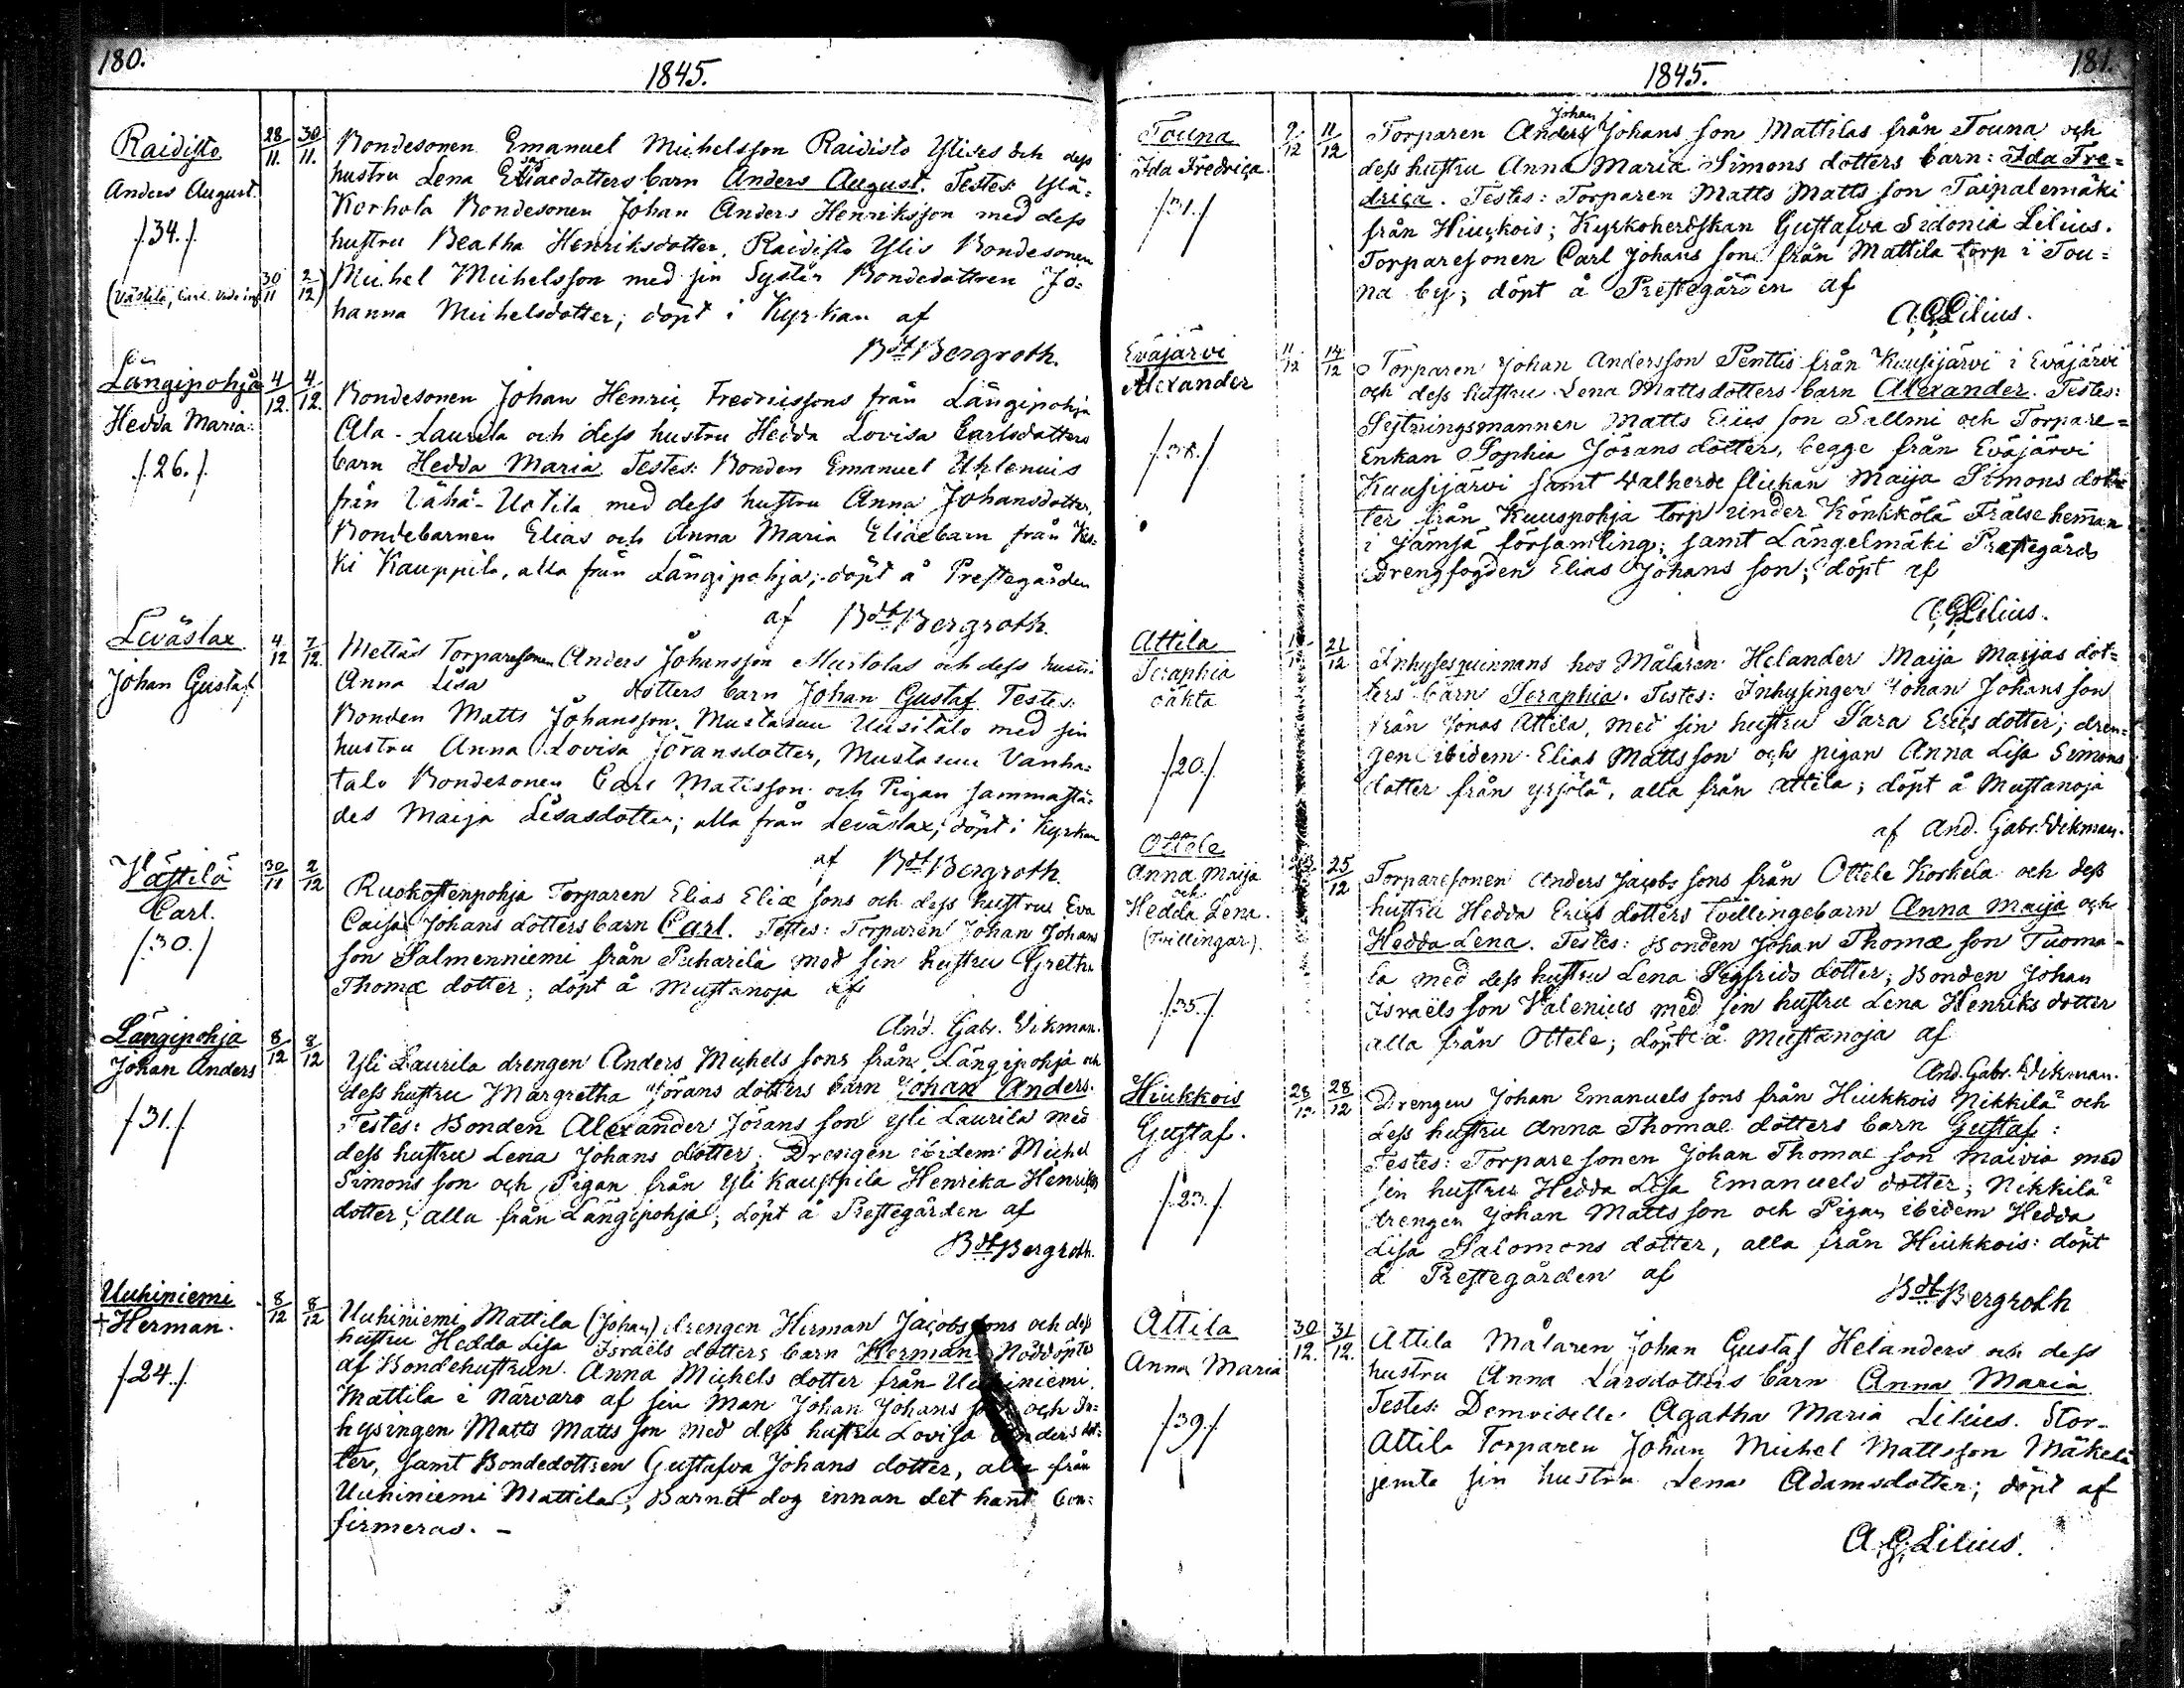 180.
1845.
Raidisto
Anders August.
/34./
28/11. 30/11.
Bondesonen Emanuel Michelsson Raidisto Ylises och dess
hustru Lena Eliaedotters barn Anders August. Testes: Ylä-
Korhola Bondesonen Johan Anders Henriksson med dess
hustru Beatha Henriksdotter, Raidisto Ylis Bondesonen
(Västilä, Carl. vide inf. 30/11 2/12)
Michel Michelsson med sin Syster Bondedottren Jo-
hanna Michelsdotter; döpt i Kyrkan af
Bdt Bergroth.
Längipohja
Hedda Maria.
/26./
4/12. 4/12.
Bondesonen Johan Henric Fredricssons från Längipohja
Ala-Laurila och dess hustru Hedda Lovisa Carlsdotters
barn Hedda Maria. Testes: Bonden Emanuel Uhlenius
från Vähä-Uotila med dess hustru Anna Johansdotter,
Bondebarnen Elias och Anna Maria Eliaebarn från Kes-
ki Kauppila, alla från Längipohja; döpt å Prestegården
af Bdt Bergroth.
Leväslax
Johan Gustaf
4/12 7/12.
Mettäs Torparesonen Anders Johansson Murtolas och dess hustru
Anna Lisa dotters barn Johan Gustaf Testes:
Bonden Matts Johansson Mustasuu Uusitalo med sin
hustru Anna Lovisa Jöransdotter, Mustasuu Vanha-
talo Bondesonen Carl Matisson och Pigan sammastä-
des Maija Lisasdotter; alla från Leväslax; döpt i Kyrkan
af Bdt Bergroth.
Västilä
Carl.
/30./
30/11 2/12
Ruokostenpohja Torparen Elias Eliæ sons och dess hustrus Eva
Caisa Johans dotters barn Carl. Testes: Torparen Johan Johans
son Salmenniemi från Puharila med sin hustru Gretha
Thomæ dotter; döpt å Mustanoja af
And. Gabr. Vikman.
Längipohja
Johan Anders
/31./
8/12 8/12
Yli Laurila drengen Anders Michels sons från Längipohja och
dess hustru Margretha Jörans dotters barn Johan Anders.
Testes: Bonden Alexander Jörans son Yli Laurila med
dess hustru Lena Johans dotter; Drengen ibidem Michel
Simons son och Pigan från Yli Kauppila Henrika Henriks
dotter; alla från Längipohja; döpt å Prestegården af
Bdt Bergroth.
Uuhiniemi
+Herman.
/24./
8/12 8/12
Uuhiniemi Mattila (Johan) drengen Herman Jacobs sons och dess
hustru Hedda Lisa Israëls dotters barn Herman Nöddöpte
af Bondehustrun Anna Michels dotter från Uuhiniemi
Mattila i närvaro af sin Man Johan Johans son och In-
hysingen Matts Matts son med dess hustru Lovisa Anders dot-
ter, samt Bondedottren Gustafva Johans dotter, alla från
Uuhiniemi Mattila; Barnet dog innan det hant con-
firmeras. -
181.
1845.
Touna
Ida Fredrica.
/31./
9/12 11/12
Johan
Torparen Anders Johans son Mattilas från Touna och
dess hustru Anna Maria Simons dotters barn: Ida Fre-
drica. Testes: Torparen Matts Matts son Taipalemäki
från Hiuckois; Kyrkoherdskan Gustafva Sidonia Lilius.
Torparesonen Carl Johans son från Mattila torp i Tou-
na by; döpt å Prestegården af
A.G. Lilius.
Eväjärvi
Alexander
11/12 14/12
Torparen Johan Andersson Penttis från Kuusijärvi i Eväjärvi
och dess hustru Lena Mattsdotters barn Alexander. Testes:
Sytningsmannen Matts Erics son Sallmi och Torpare-
Enkan Sophia Jörans dotter, begge från Eväjärvi
Kuusijärvi samt Walherde flickan Maija Simons dot-
ter från Kuuspohja torp under Könkkölä Frälse heman
i Jämsä församling; samt Längelmäki Prestegårds
Drengfogden Elias Johans son; döpt af
A.G. Lilius.
Attila
Seraphia
oäkta
/20./
21/12
Inhysesquinnans hos Målaren Helander Maija Maijas dot-
ters barn Seraphia. Testes: Inhysingen Johan Johans son
från Jonas Attila, med sin hustru Sara Erics dotter; dren-
gen ibidem Elias Matts son och pigan Anna Lisa Simons
dotter från Yrjölä, alla från Attila; döpt å Mustanoja
af And. Gabr. Vikman.
Ottele
Anna Maija
och
Hedda Lena.
(Tvillingar).
/35./
25/12
Torparesonen Anders Jacobs sons från Ottele Korkela och dess
hustru Hedda Erics dotters Tvillingebarn Anna Maija och
Hedda Lena. Testes: Bonden Johan Thomæ son Tuoma-
la med dess hustru Lena Sigfrids dotter; Bonden Johan
Israëls son Valenius med sin hustru Lena Henriks dotter
alla från Ottele; döpte å Mustanoja af
And. Gabr. Vikman.
Hiukkois
Gustaf.
/23./
28/12 28/12
Drengen Johan Emanuels sons från Hiukkois Nikkilä och
dess hustru Anna Thomae dotters barn Gustaf:
Testes: Torpare sonen Johan Thomae son Maivia med
sin hustru Hedda Lisa Emanuels dotter; Nikkilä
drengen Johan Matts son och Pigan ibidem Hedda
Lisa Salomons dotter, alla från Hiukkois: döpt
å Prestegården af
Bdt Bergroth
Attila
Anna Maria
/39./
30/12. 31/12.
Attila Målaren Johan Gustaf Helanders och dess
hustru Anna Larsdotters barn Anna Maria
Testes: Demoiselle Agatha Maria Lilius. Stor-
Attila Torparen Johan Michel Mattsson Mäkelä
jemte sin hustru Lena Adamsdotter; döpt af
A.G. Lilius.